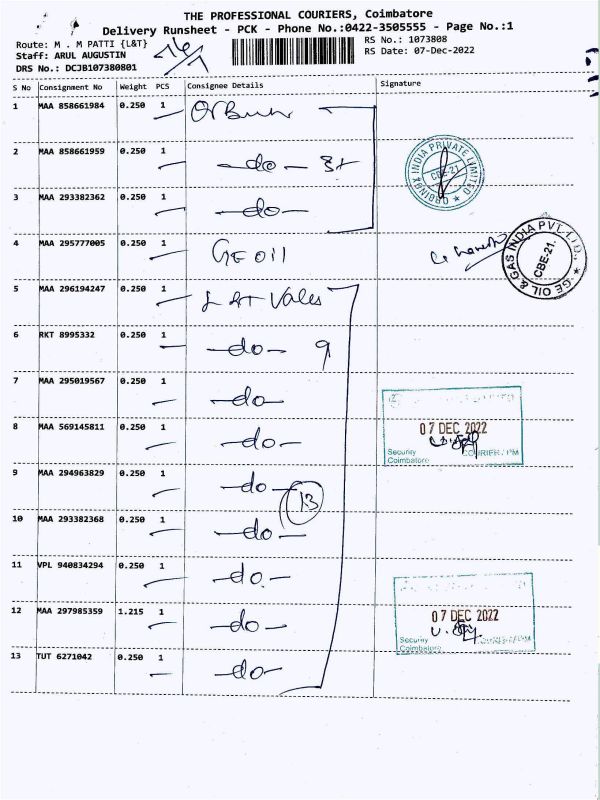 THE PROFESSIONAL COURIERS, Coimbatore
Delivery Runsheet - PCK - Phone No.:0422-3505555 - Page No.:1
Route: M . M PATTI {L&T}
RS No.: 1073808
Staff: ARUL AUGUSTIN
RS Date: 07-Dec-2022
DRS No.: DCJB107380801
S No Consignment No Weight PCS Consignee Details Signature
1 MAA 858661984 0.250 1
2 MAA 858661959 0.250 1 -do-
3 MAA 293382362 0.250 1 -do-
INDIA PRIVATE LIMITED
CBE-21
4 MAA 295777005 0.250 1 GE oil
GE OIL & GAS INDIA PVT. LTD.,
CBE-21.
5 MAA 296194247 0.250 1 L&T Vales
6 RKT 8995332 0.250 1 -do- 9
7 MAA 295019567 0.250 1 -do-
8 MAA 569145811 0.250 1 -do-
07 DEC 2022
Security COURIER / PM
Coimbatore
9 MAA 294963829 0.250 1 -do-
13
10 MAA 293382368 0.250 1 -do-
11 VPL 940834294 0.250 1 -do-
12 MAA 297985359 1.215 1 -do-
07 DEC 2022
Security COURIER / PM
Coimbatore
13 TUT 6271042 0.250 1 -do-